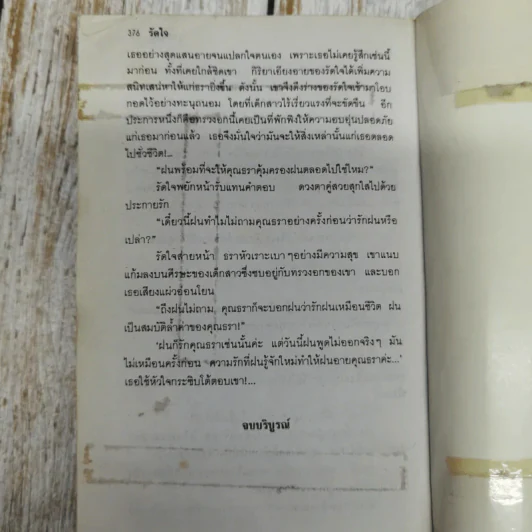 376 รัดใจ
เธออย่างสุดแสนอายจนแปลกใจตนเอง เพราะเธอไม่เคยรู้สึกเช่นนี้
มาก่อน ทั้งที่เคยใกล้ชิดเขา กิริยาเอียงอายของรัดใจได้เพิ่มความ
สนิทเสน่หาให้แก่ธรายิ่งขึ้น ดังนั้น เขาจึงดึงร่างของรัดใจเข้ามาโอบ
กอดไว้อย่างทะนุถนอม โดยที่เด็กสาวไร้เรี่ยวแรงที่จะขัดขืน อีก
ประการหนึ่งก็คือทรวงอกนี้เคยเป็นที่พักพิงให้ความอบอุ่นปลอดภัย
แก่เธอมาก่อนแล้ว เธอจึงมั่นใจว่ามันจะให้สิ่งเหล่านั้นแก่เธอตลอด
ไปชั่วชีวิต!...
“ฝนพร้อมที่จะให้คุณธราคุ้มครองฝนตลอดไปใช่ไหม?”
รัดใจพยักหน้ารับแทนคำตอบ ดวงตาคู่สวยสุกใสไปด้วย
ประกายรัก
“เดี๋ยวนี้ฝนทำไมไม่ถามคุณธราอย่างครั้งก่อนว่ารักฝนหรือ
เปล่า?”
รัดใจส่ายหน้า ธราหัวเราะเบาๆอย่างมีความสุข เขาแนบ
แก้มลงบนศีรษะของเด็กสาวซึ่งซบอยู่กับทรวงอกของเขา และบอก
เธอเสียงแผ่วอ่อนโยน
“ถึงฝนไม่ถาม คุณธราก็จะบอกฝนว่ารักฝนเหมือนชีวิต ฝน
เป็นสมบัติล้ำค่าของคุณธรา!”
‘ฝนก็รักคุณธราเช่นนั้นค่ะ แต่วันนี้ฝนพูดไม่ออกจริงๆ มัน
ไม่เหมือนครั้งก่อน ความรักที่ฝนรู้จักใหม่ทำให้ฝนอายคุณธราค่ะ...’
เธอใช้หัวใจกระซิบโต้ตอบเขา!...
จบบริบูรณ์